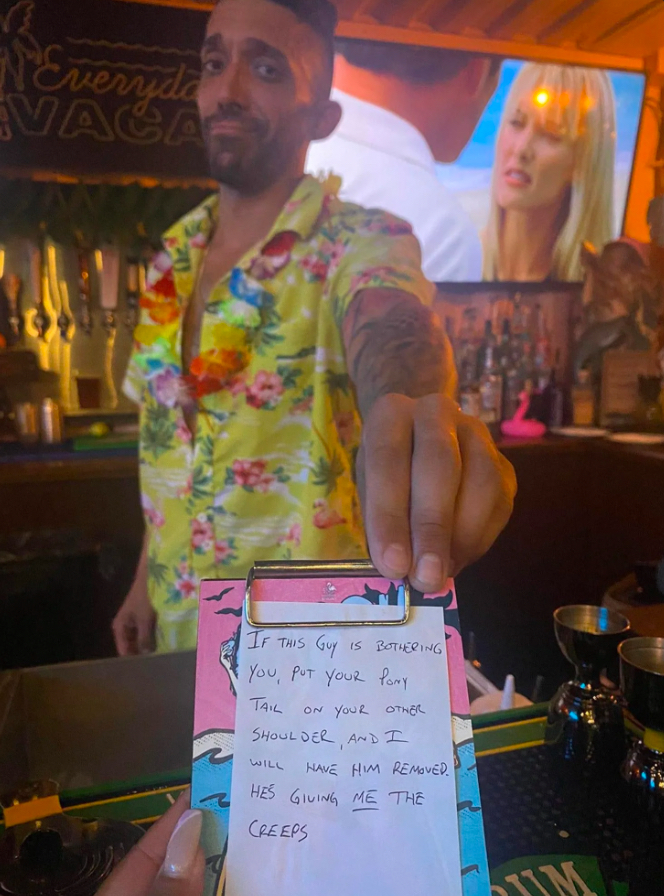 Everyda
VACA
IF THIS GUY IS BOTHERING
YOU, PUT YOUR PONY
TAIL ON YOUR OTHER
SHOULDER, AND I
WILL HAVE HIM REMOVED.
HE'S GIVING ME THE
CREEPS
UM